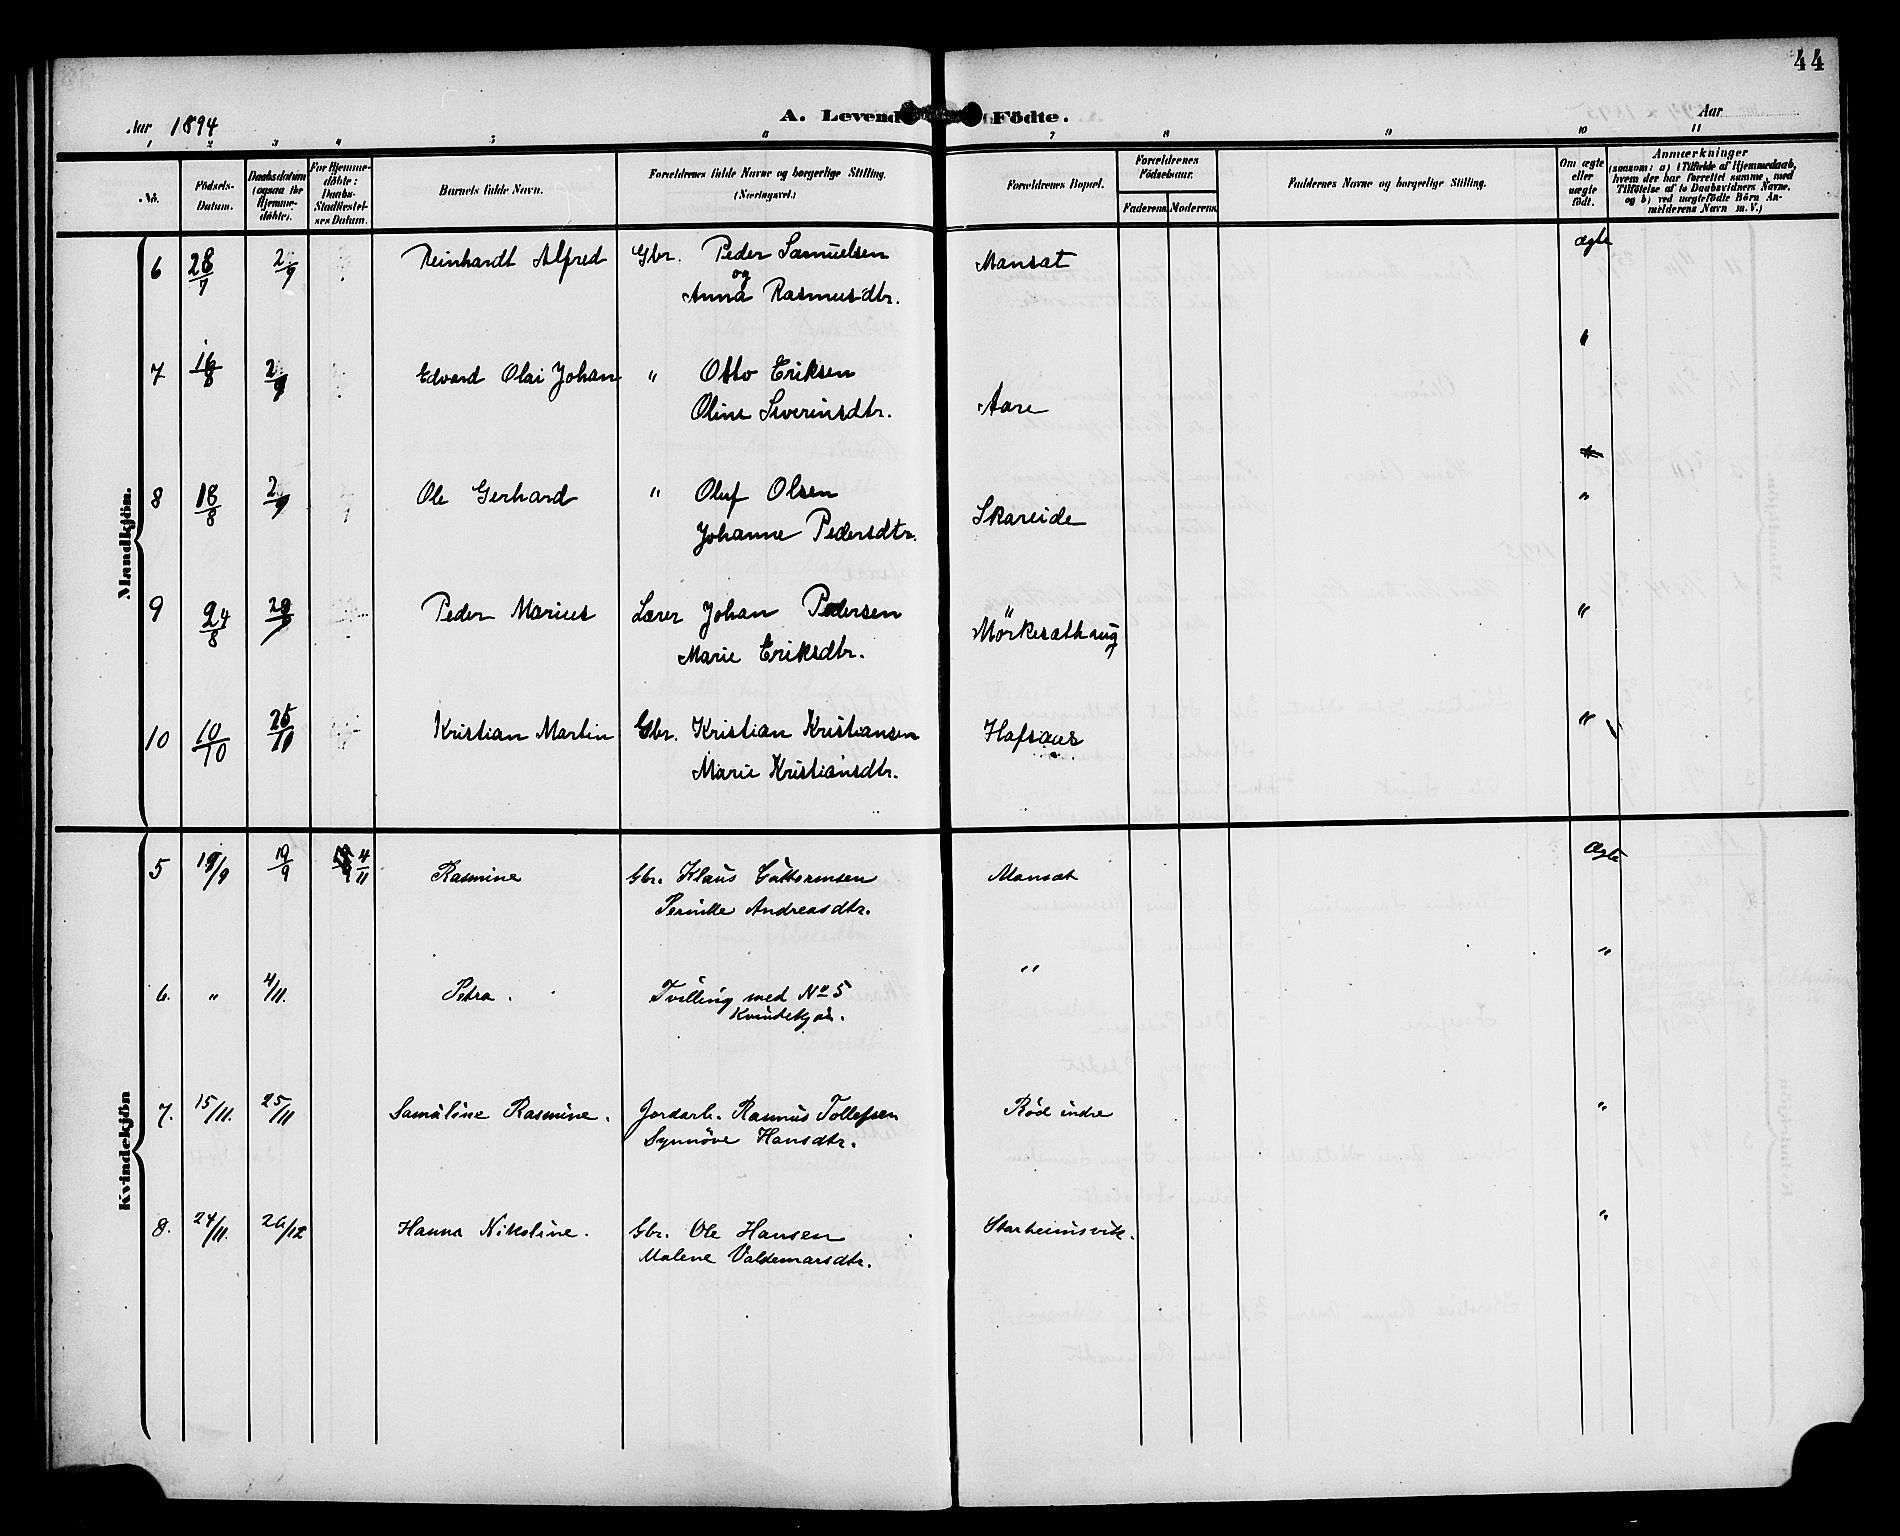 44
Aar 1894
A. Levende Födte.
Aar
1 2 3 4 5 6 7 8 9 10 11
No.
Födsels-Datum.
Daabsdatum (ogsaa for Hjemme-döbte).
For Hjemme-döbte: Daabs-Stadfæstel-ses Datum.
Barnets fulde Navn.
Forældrenes fulde Navne og borgerlige Stilling. (Næringsvei.)
Forældrenes Bopæl.
Forældrenes Födselsaar.
Faderens. Moderens.
Faddernes Navne og borgerlige Stilling.
Om ægte eller uægte födt.
Anmærkninger
(saasom: a) i Tilfælde af Hjemmedaab, hvem der har forrettet samme, med Tilföielse af to Daabsvidners Navne, og b) ved uægtefödte Börn An-melderens Navn m. V.)
Mandkjön.
6 28/7 2/9 Reinhardt Alfred Gbr. Peder Samuelsen Mansæt ægte
og
Anna Rasmusdtr.
7 16/8 2/9 Edvard Olai Johan " Otto Eriksen "
Oline Severinsdtr. Aare
8 18/8 2/9 Ole Gerhard " Oluf Olsen "
Johanne Pedersdtr. Skareide
9 24/8 Peder Marius Lærer Johan Pedersen "
Marie Eriksdtr. Mörkesæthaug
10 10/10 25/11 Kristian Martin Gbr. Kristian Kristiansen Hafsaas "
Marie Kristiansdtr.
Kvindekjön
5 19/9 4/11 Rasmine Gbr. Klaus Guttormsen Mansæt Ægte
Pernille Andreasdtr.
6. " 4/11. Petra. Tvilling med No 5 " "
Kvindekjön.
7. 15/11. 25/11 Samuline Rasmine. Jordarb. Rasmus Tollefsen Röd indre "
Synnöve Hansdtr.
8. 24/11. 26/12 Hanna Nikoline. Gbr. Ole Hansen Starheimsvik. "
Malene Valdemarsdtr.